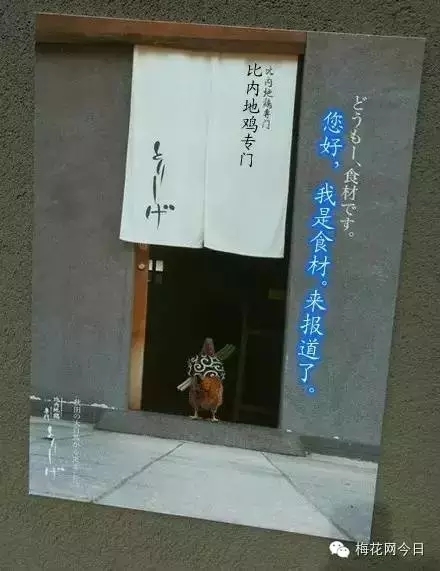 どうもー、食材です。
您好，我是食材。来报道了。
比内地鶏専门
比内地鸡专门
とりしげ
比内地鶏
専門
とりしげ
梅花网今日